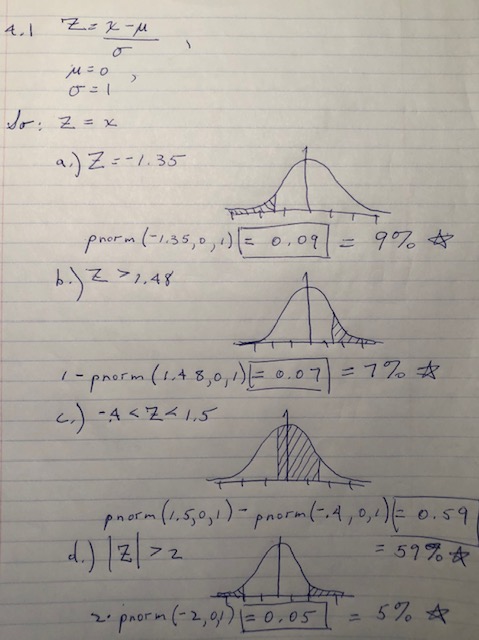 4.1 Z = x - μ / σ ,
μ = 0 ,
σ = 1
So: Z = x
a.) Z = -1.35
pnorm(-1.35, 0, 1) = 0.09 = 9% ☆
b.) Z > 1.48
1 - pnorm(1.48, 0, 1) = 0.07 = 7% ☆
c.) -.4 < Z < 1.5
pnorm(1.5, 0, 1) - pnorm(-.4, 0, 1) = 0.59
= 59% ☆
d.) |Z| > 2
2 · pnorm(-2, 0, 1) = 0.05 = 5% ☆